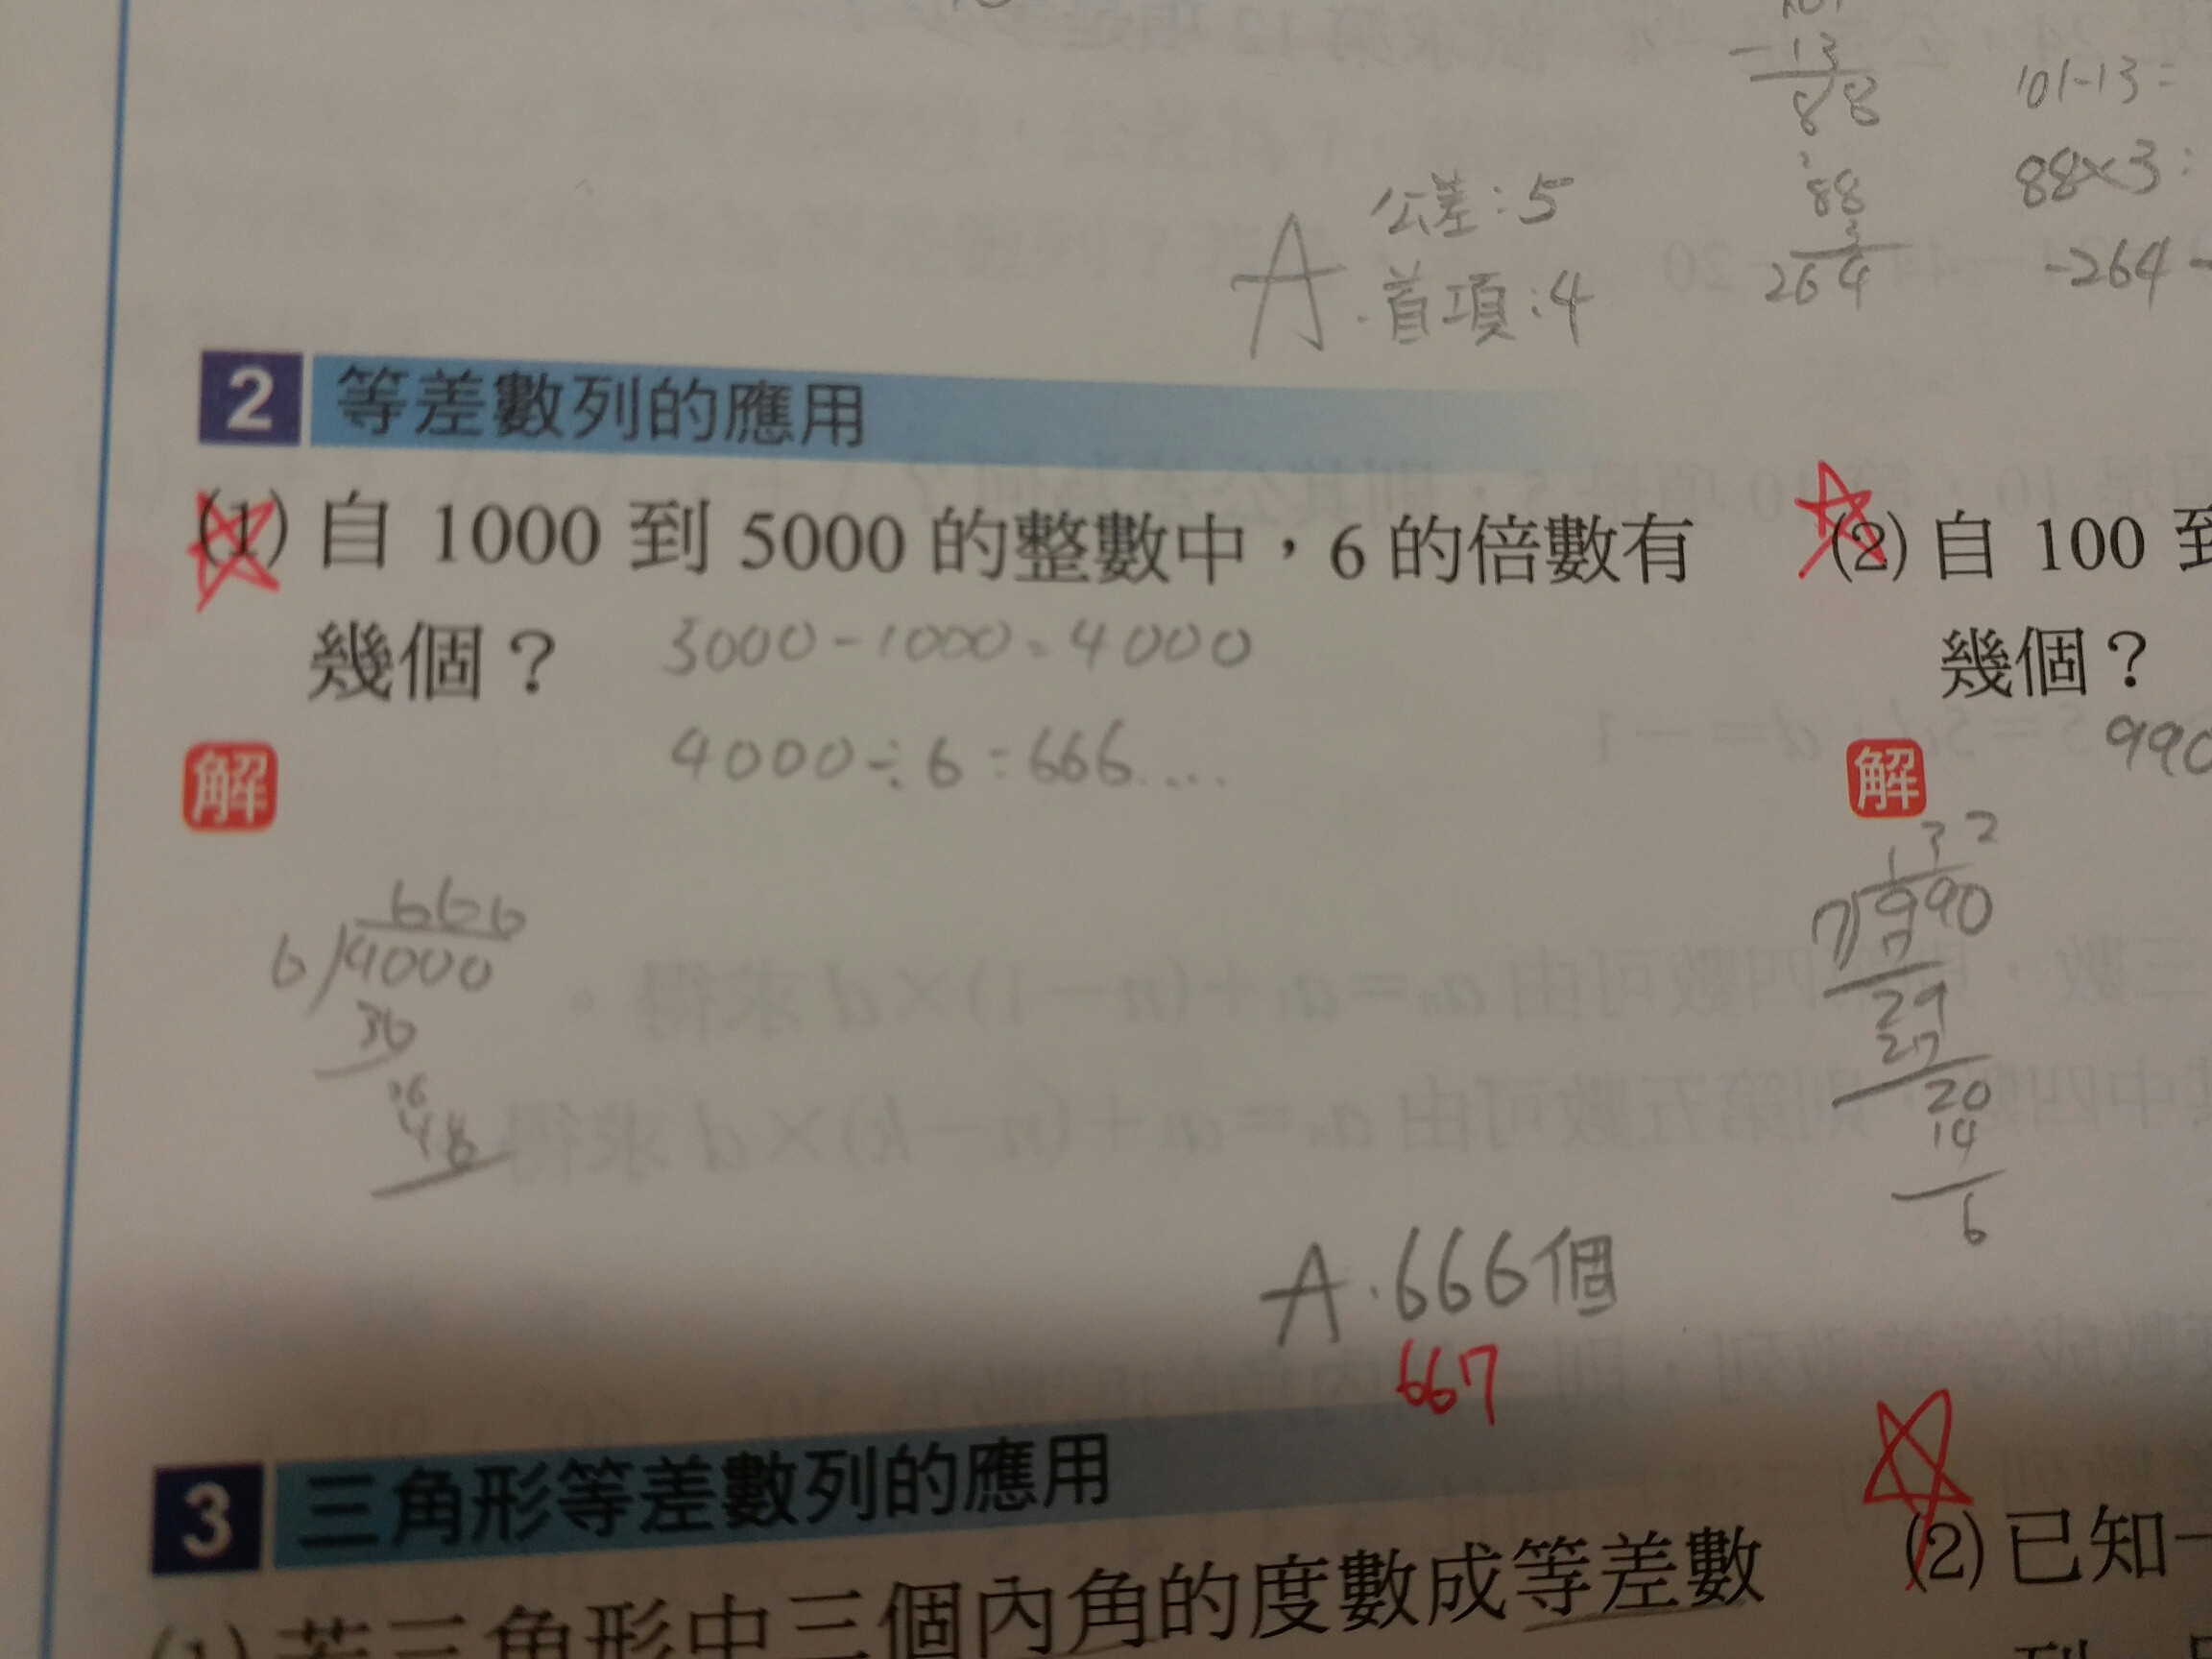 - 13
88
101-13=
88
3
264
88×3=
-264
A. 公差:5
首項:4
2 等差數列的應用
(1) 自 1000 到 5000 的整數中，6 的倍數有
幾個？
5000-1000=4000
4000÷6=666....
解
666
6)4000
36
48
A.666個
667
(2) 自 100 到
幾個？
990
解
132
7)990
7
29
27
20
14
6
3 三角形等差數列的應用
(1) 若三角形中三個內角的度數成等差數
(2) 已知一